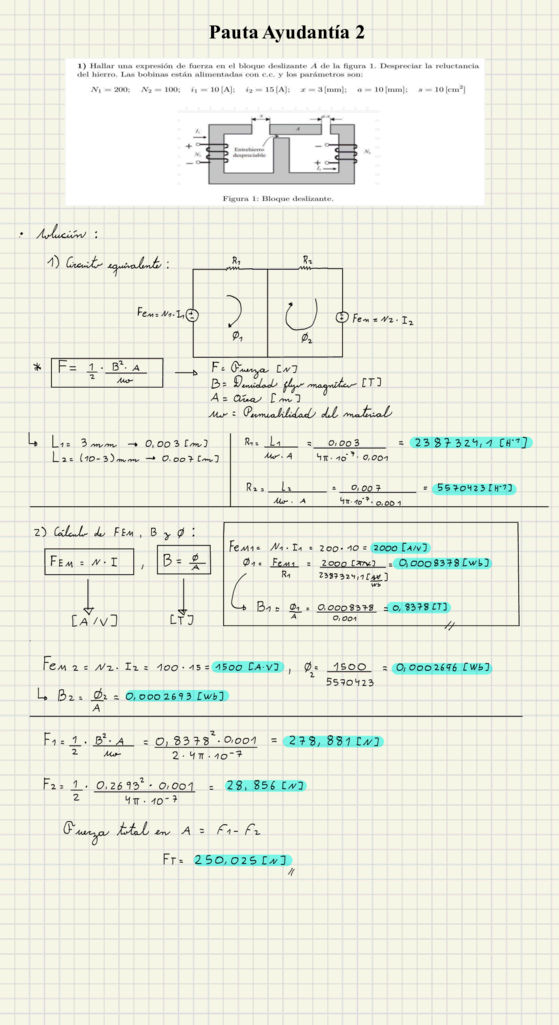 Pauta Ayudantía 2
1) Hallar una expresión de fuerza en el bloque deslizante A de la figura 1. Despreciar la reluctancia
del hierro. Las bobinas están alimentadas con c.c. y los parámetros son:
N₁ = 200; N₂ = 100; i₁ = 10 [A]; i₂ = 15 [A]; x = 3 [mm]; a = 10 [mm]; s = 10 [cm²]
x A a-x
Entrehierro
despreciable
+ − N₁ − + N₂
Figura 1: Bloque deslizante.
• Solución :
1) Circuito equivalente :
R₁ R₂
Fem = N₁ · I₁ Fem = N₂ · I₂
Ø₁ Ø₂
* F = 1/2 · B² · A / μo → F = Fuerza [N]
B = Densidad flujo magnético [T]
A = área [m]
μo = Permeabilidad del material
L₁ = 3 mm → 0,003 [m]
L₂ = (10-3) mm → 0.007 [m]
R₁ = L₁ / μo · A = 0,003 / 4π · 10⁻⁷ · 0,001 = 2387324,1 [H⁻¹]
R₂ = L₂ / μo · A = 0,007 / 4π · 10⁻⁷ · 0,001 = 5570423 [H⁻¹]
2) Cálculo de FEM, B y Ø :
FEM = N · I , B = Ø / A
[A/V] [T]
FEM₁ = N₁ · I₁ = 200 · 10 = 2000 [A/V]
Ø₁ = FEM₁ / R₁ = 2000 [AV] / 2387324,1 [AV/Wb] = 0,0008378 [Wb]
B₁ = Ø₁ / A = 0.0008378 / 0,001 = 0,8378 [T]
FEM 2 = N₂ · I₂ = 100 · 15 = 1500 [A·V] , Ø₂ = 1500 / 5570423 = 0,0002696 [Wb]
B₂ = Ø₂ / A = 0,0002693 [Wb]
F₁ = 1/2 · B² · A / μo = 0,8378² · 0.001 / 2 · 4π · 10⁻⁷ = 278,881 [N]
F₂ = 1/2 · 0.2693² · 0,001 / 4π · 10⁻⁷ = 28,856 [N]
Fuerza total en A = F₁ - F₂
FT = 250,025 [N]